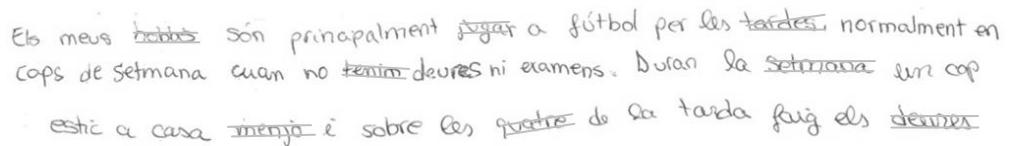 Els meus hobbis són prinapalment jugar a fútbol per les tardes, normalment en
caps de setmana cuan no tenim deures ni examens. Duran la setmana un cop
estic a casa menjo i sobre les quatre de la tarda faig els deures